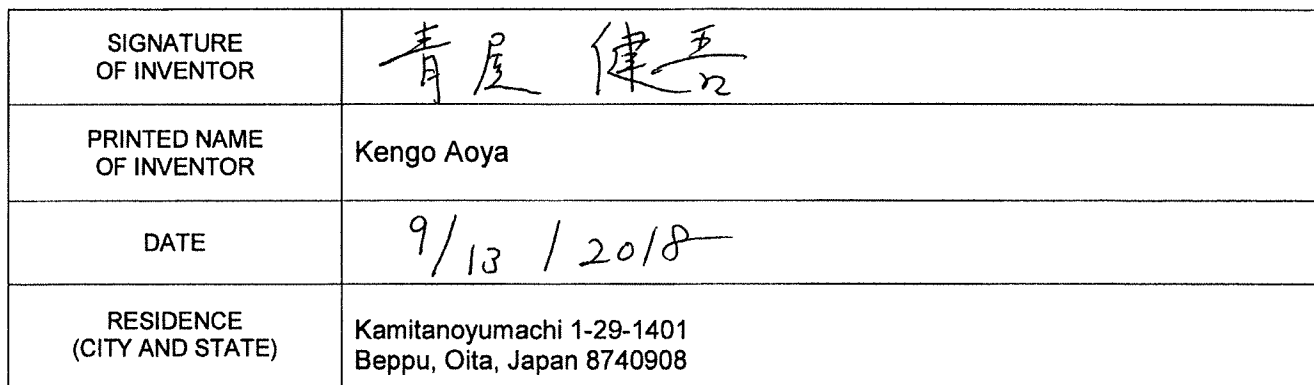 SIGNATURE
OF INVENTOR
青屋 健吾
PRINTED NAME
OF INVENTOR
Kengo Aoya
DATE
9/13/2018
RESIDENCE
(CITY AND STATE)
Kamitanoyumachi 1-29-1401
Beppu, Oita, Japan 8740908